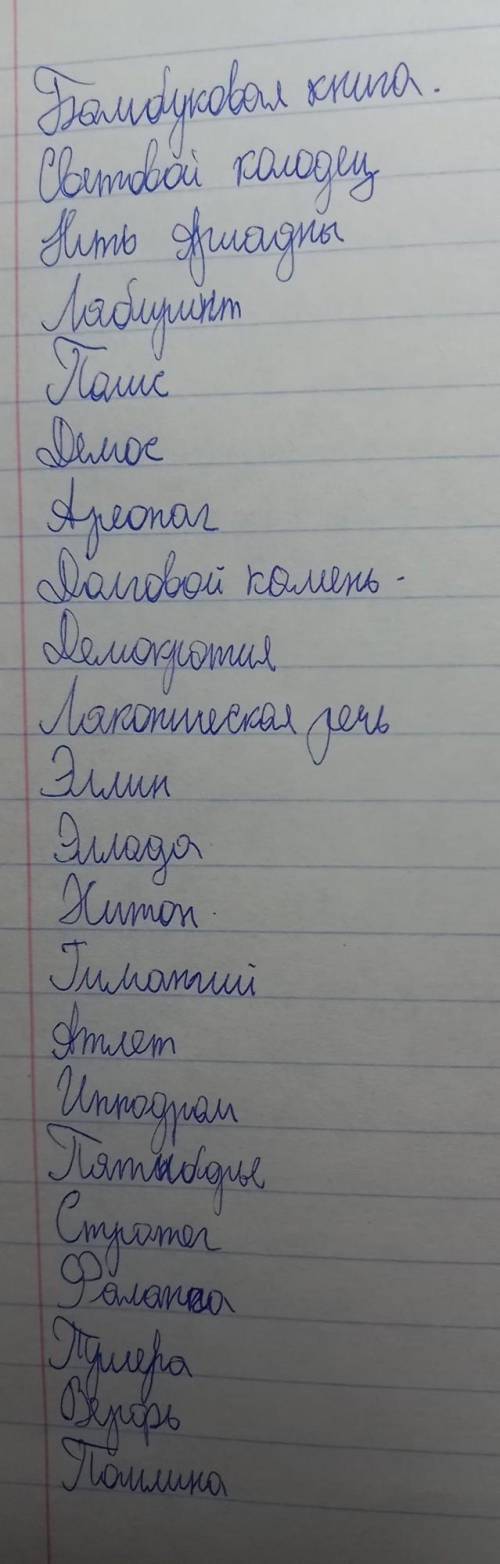 Бамбуковая книга.
Световой колодец
Нить Ариадны
Лабиринт
Полис
Демос
Ареопаг
Долговой камень.
Демократия
Лаконическая речь
Эллин
Эллада
Хитон
Гиматий
Атлет
Ипподром
Пятиборье
Стратег
Фаланга
Триера